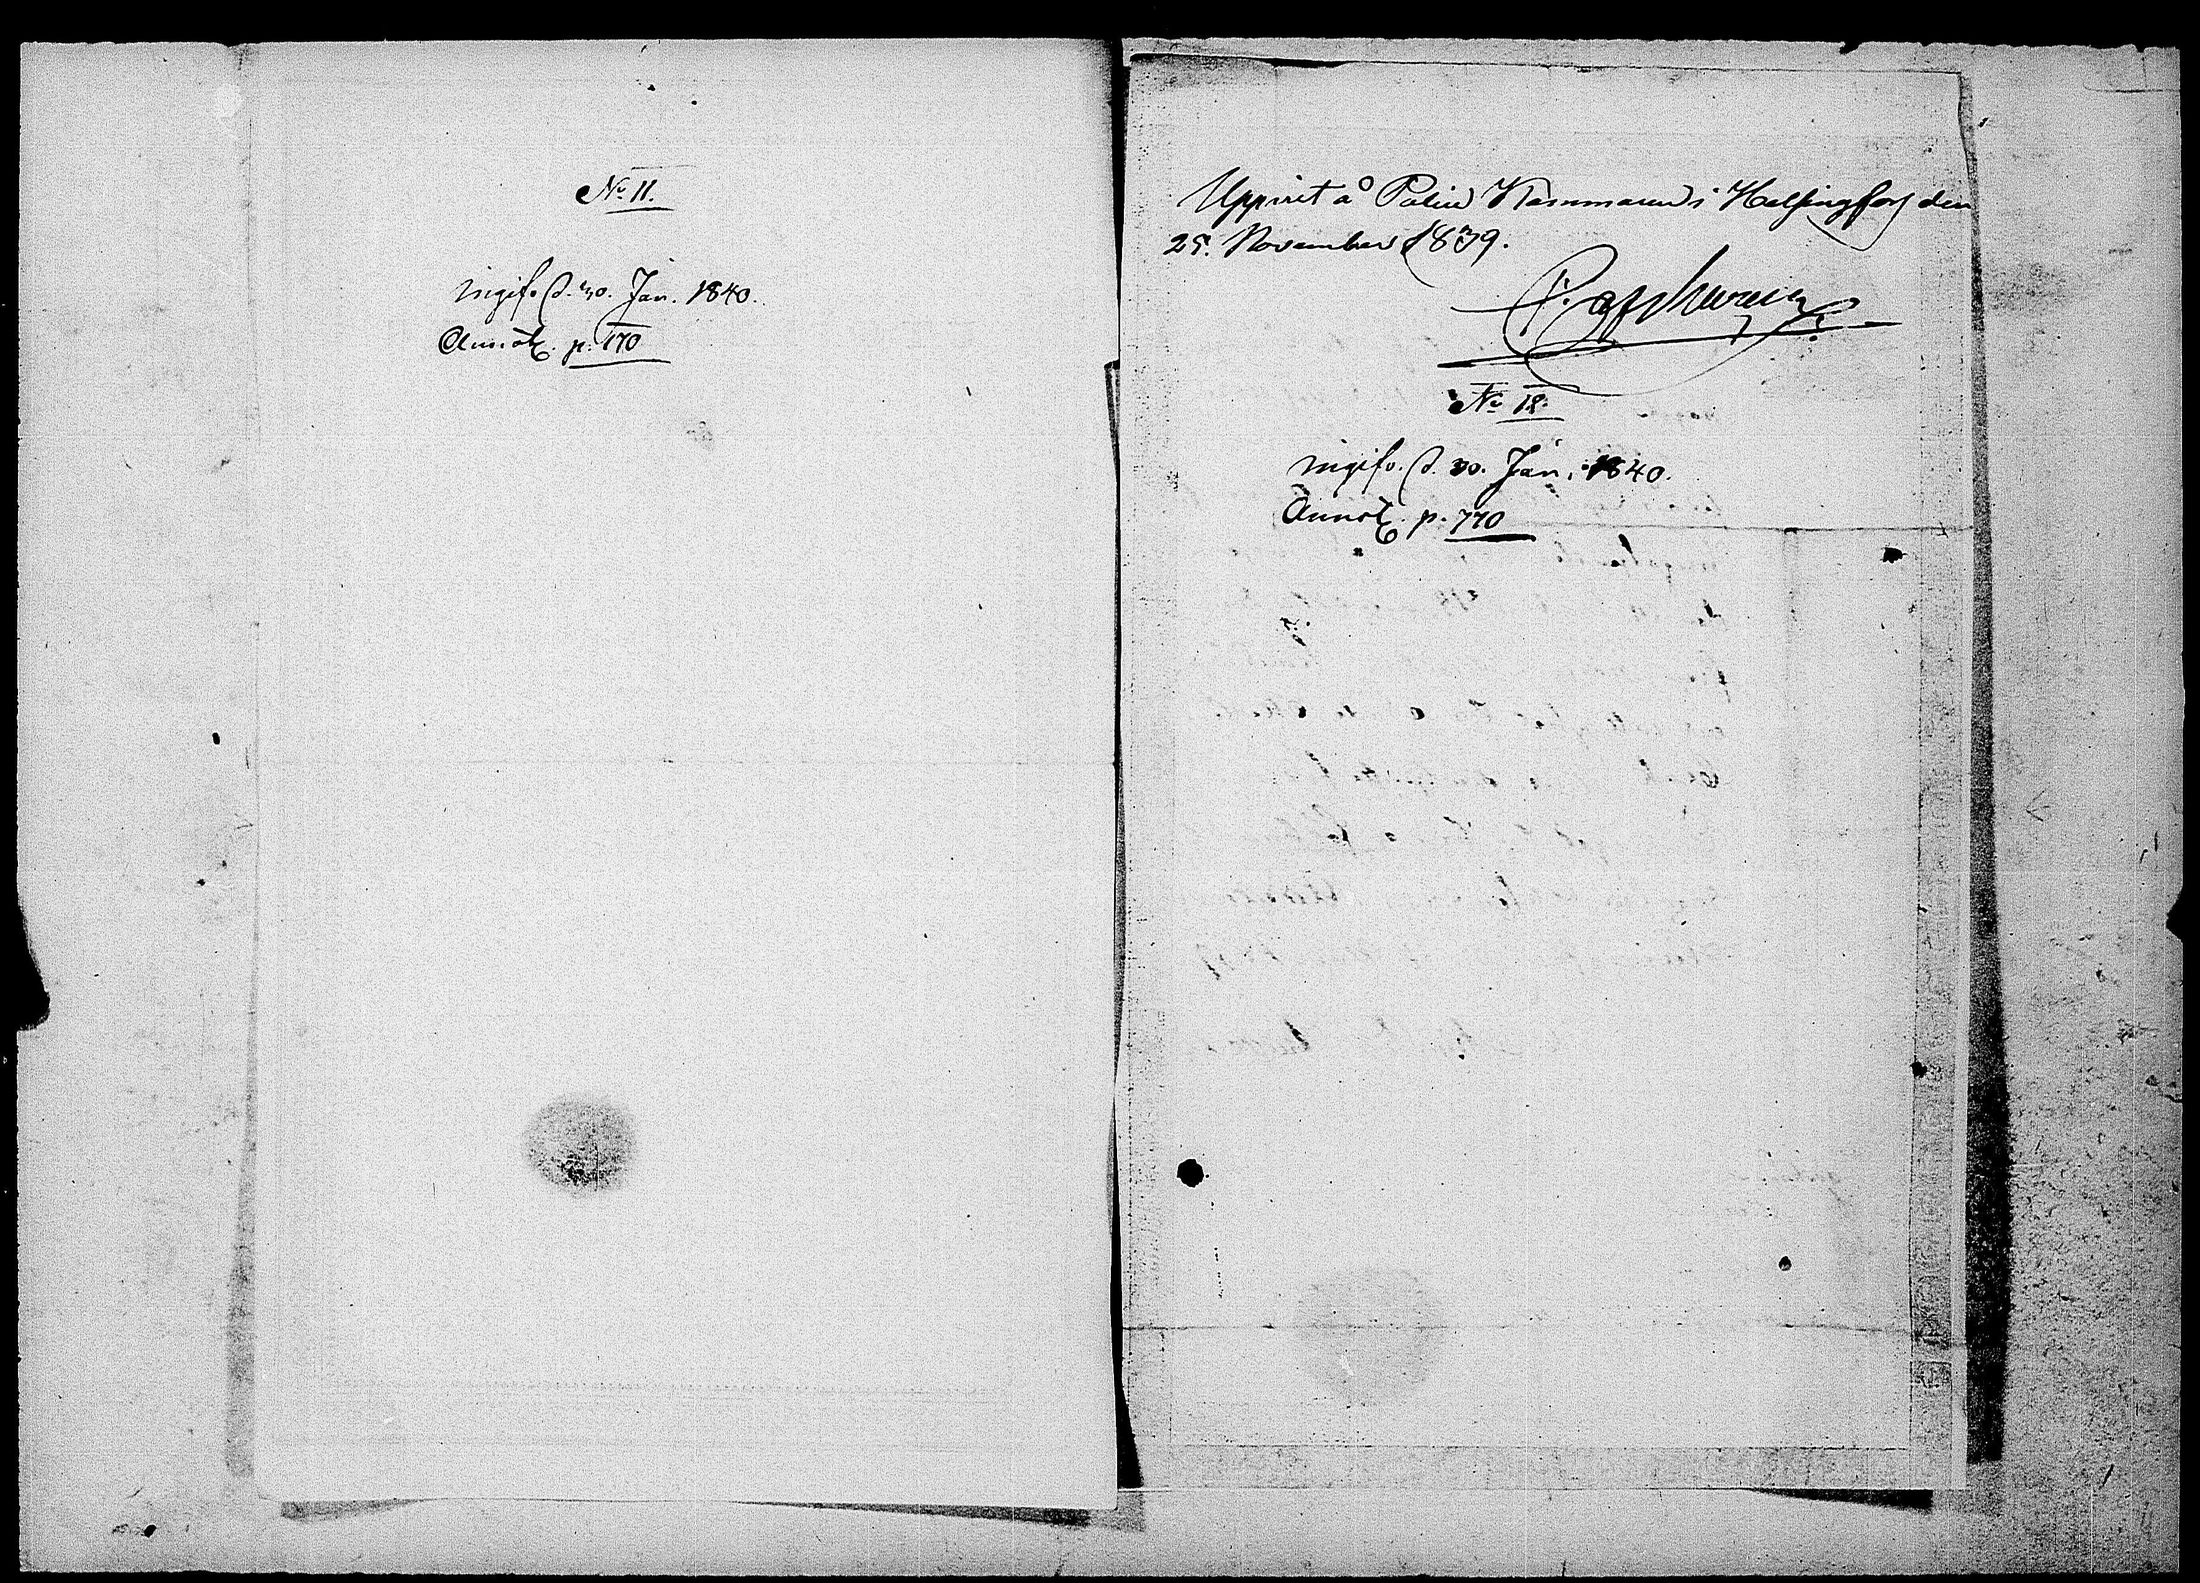 No 11.
ingif. d. 30. Jan. 1840.
Annot. p. 170
Uppvist å Police Kammaren i Helsingfors den
25. November 1839.
No 12.
ingifv. d. 30. Jan. 1840.
Annot. p. 170